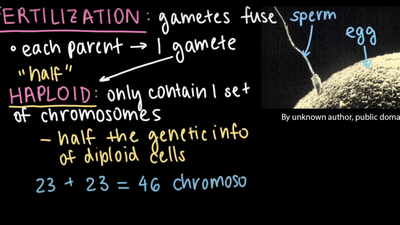 FERTILIZATION: gametes fuse
• each parent → 1 gamete
"half"
HAPLOID: only contain 1 set
of chromosomes
- half the genetic info
of diploid cells
23 + 23 = 46 chromoso
sperm
egg
By unknown author, public doma